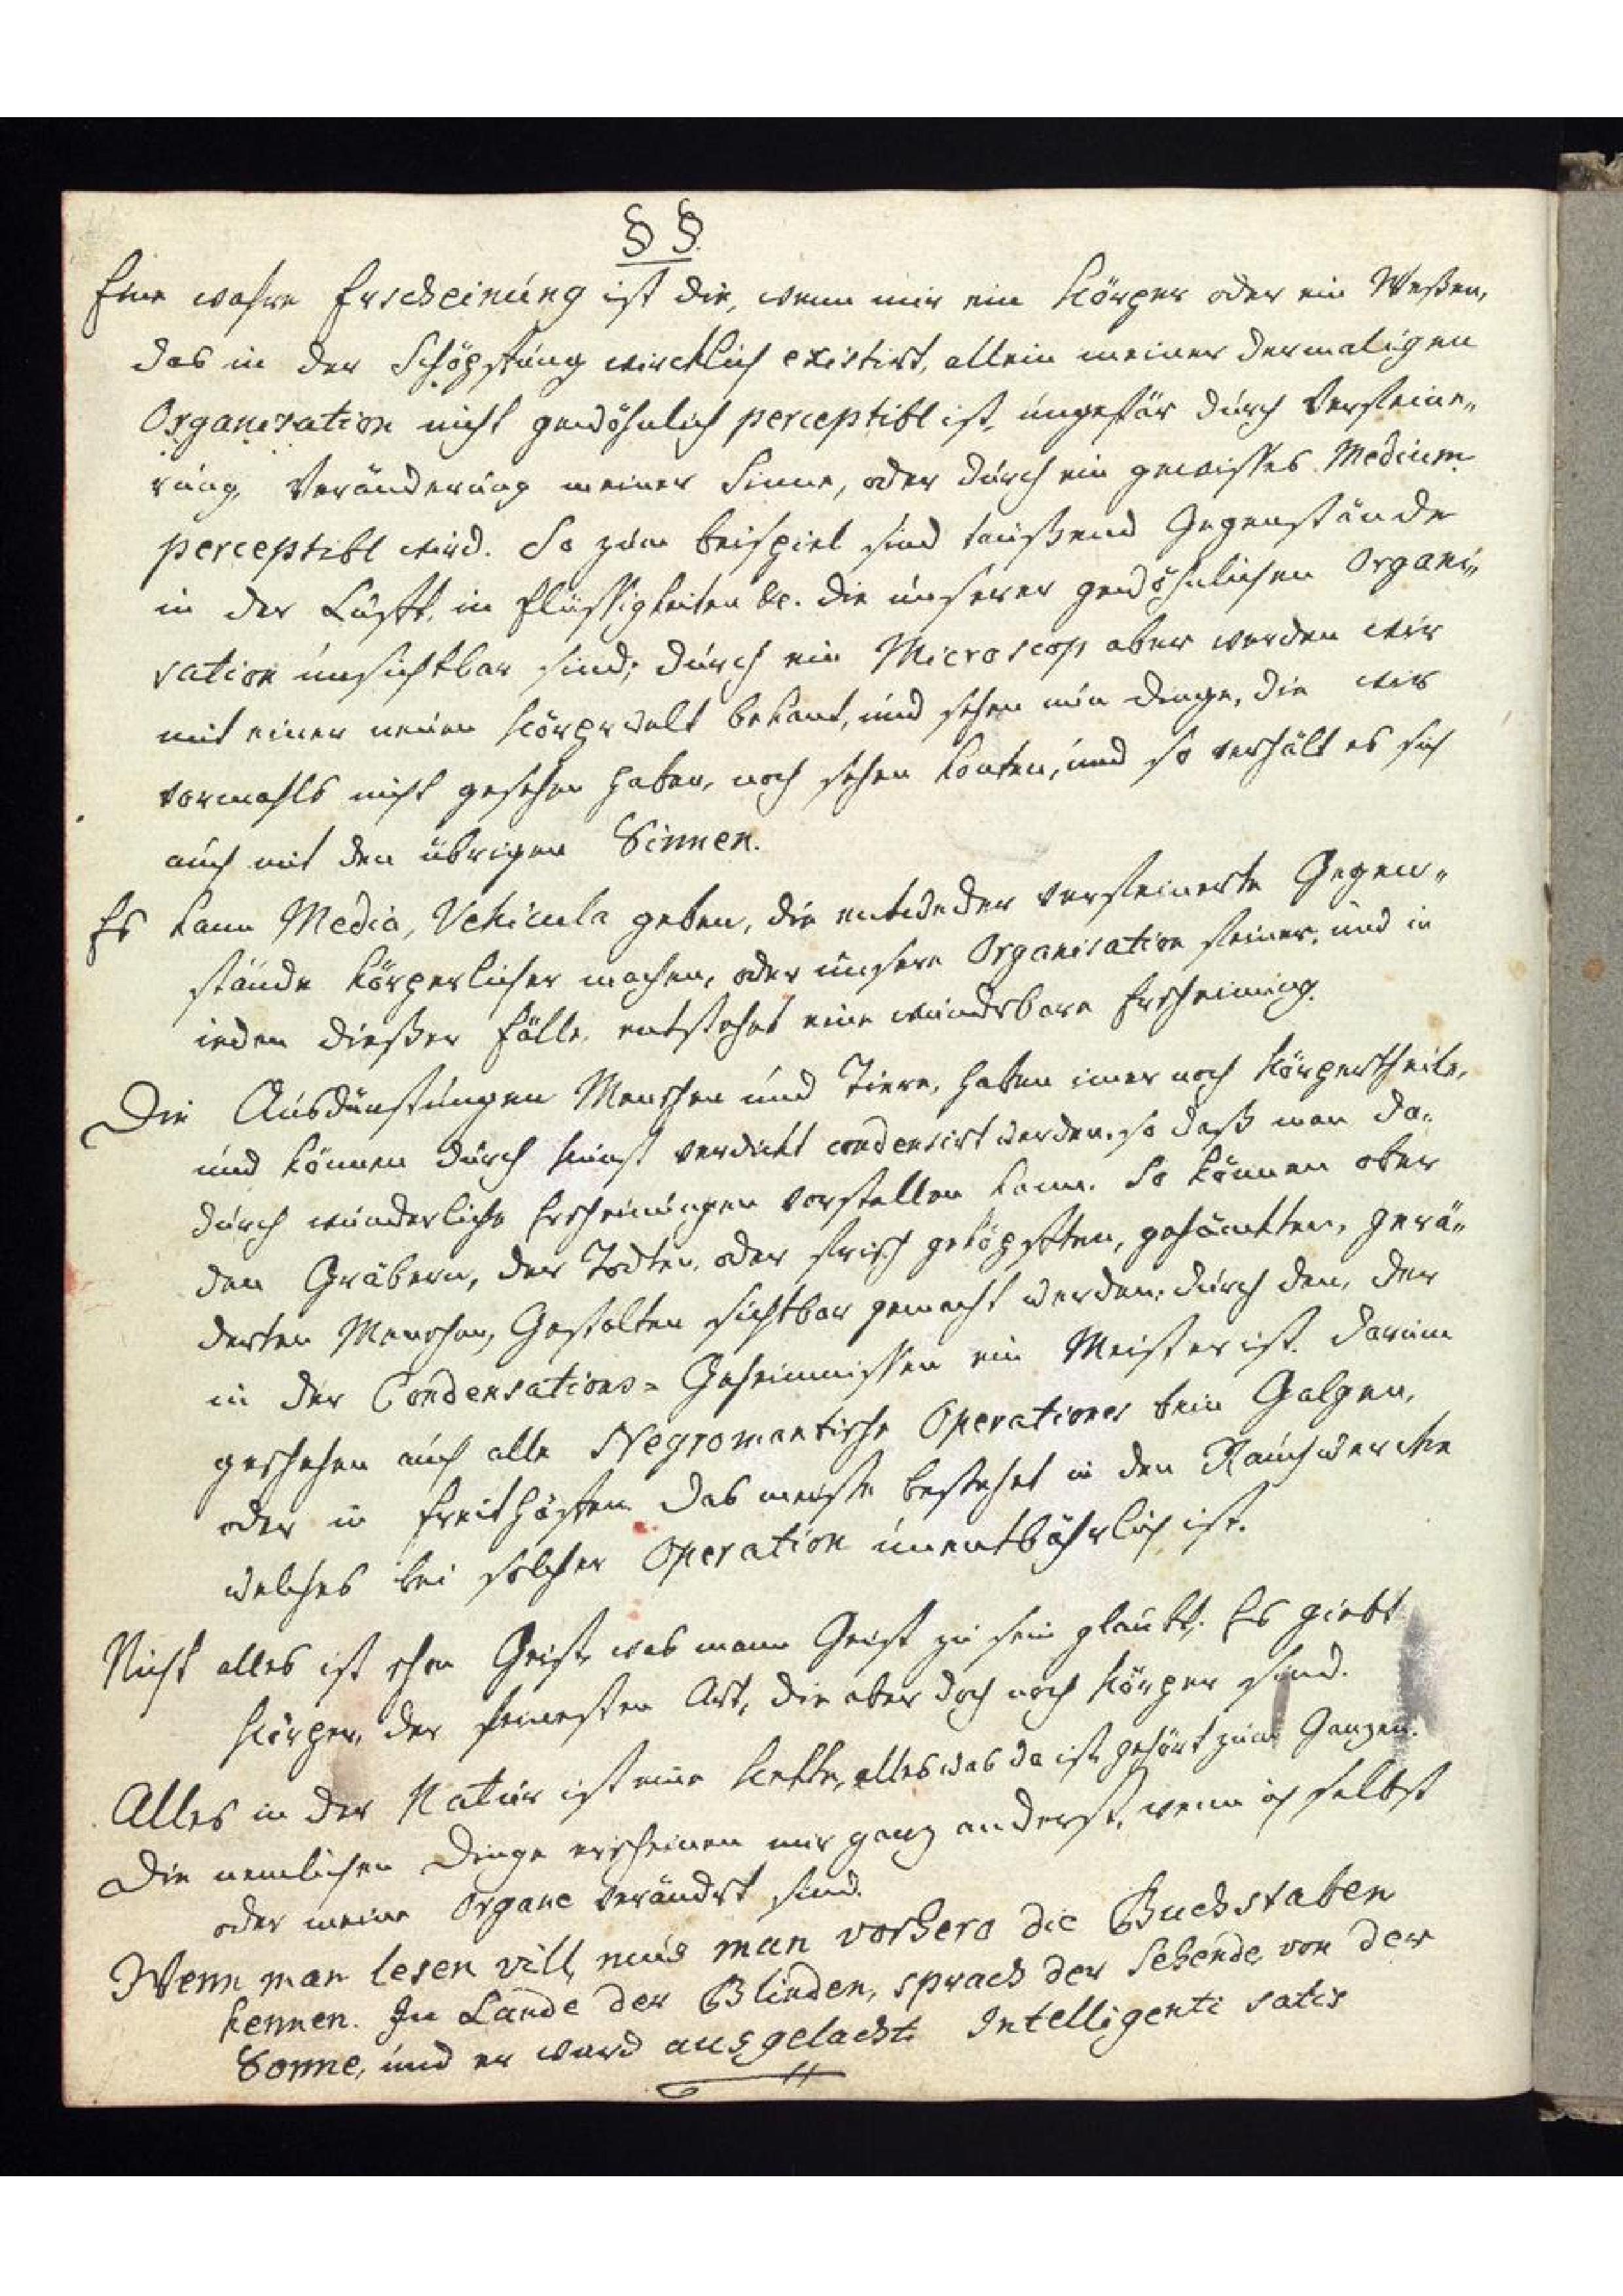 § §.
Eine wahre Erscheinung ist die, wenn mir ein Körper oder ein Weßen,
das in der Schöpfung wircklich existirt, allein meiner dermaligen
Organisation nicht gewöhnlich perceptibl ist, ungefär durch Verfeine„
rung, Veränderung meiner Sinne, oder durch ein gewisses Medium
perceptibl wird. So zum beispiel sind taußend Gegenstände
in der Lufft, in Flüssigkeiten &c. die unserer gewöhnlichen Organi„
sation unsichtbar sind; durch ein Microscop aber werden wir
mit einer neuen Körprwelt bekant, und sehen nun Dinge, die wir
vormahls nicht gesehen haben, noch sehen konten, und so verhält es sich
auch mit den übrigen Sinnen.
Es kann Media, Vehicula geben, die entweder verfeinerte Gegen„
stände körperlicher machen, oder unsere Organisation feiner, und in
ieden dießer Fälle, entstehet eine wundrbare Erscheinung.
Die Ausdünstungen Menschen und Tiere, haben imer noch Körpertheile,
und können durch Kunst verdickt condensirt werden, so daß man da„
durch wunderliche Erscheinungen vorstellen kann. So können ober
den Gräbern, der Todten, oder frisch geköpften, gehänkten, gerä„
derten Menschen, Gestalten sichtbar gemacht werden, durch den, der
in der Condensations= Geheimnissen ein Meister ist. Darum
geschehen auch alle Negromantische Operationes bein Galgen,
oder in Freithöfen. Das meiste bestehet in den Rauchwercke
welches bei solcher Operation unentböhrlich ist.
Nicht alles ist schon Geist, was mann Geist zu sein glaubt. Es giebt
Körper, der feinesten Art, die aber doch noch Körper sind.
Alles in der Natur ist eine Kette, alles was da ist, gehört zum Ganzen.
Die nemlichen Dinge erscheinen mir ganz anderst, wenn ich selbst
oder meine Organe verändrt sind.
Wenn man lesen will, mus man vorhero die Buchstaben
kennen. In Lande der Blinden, sprach der Sehende von der
Sonne, und er ward ausgelacht. Intelligenti satis